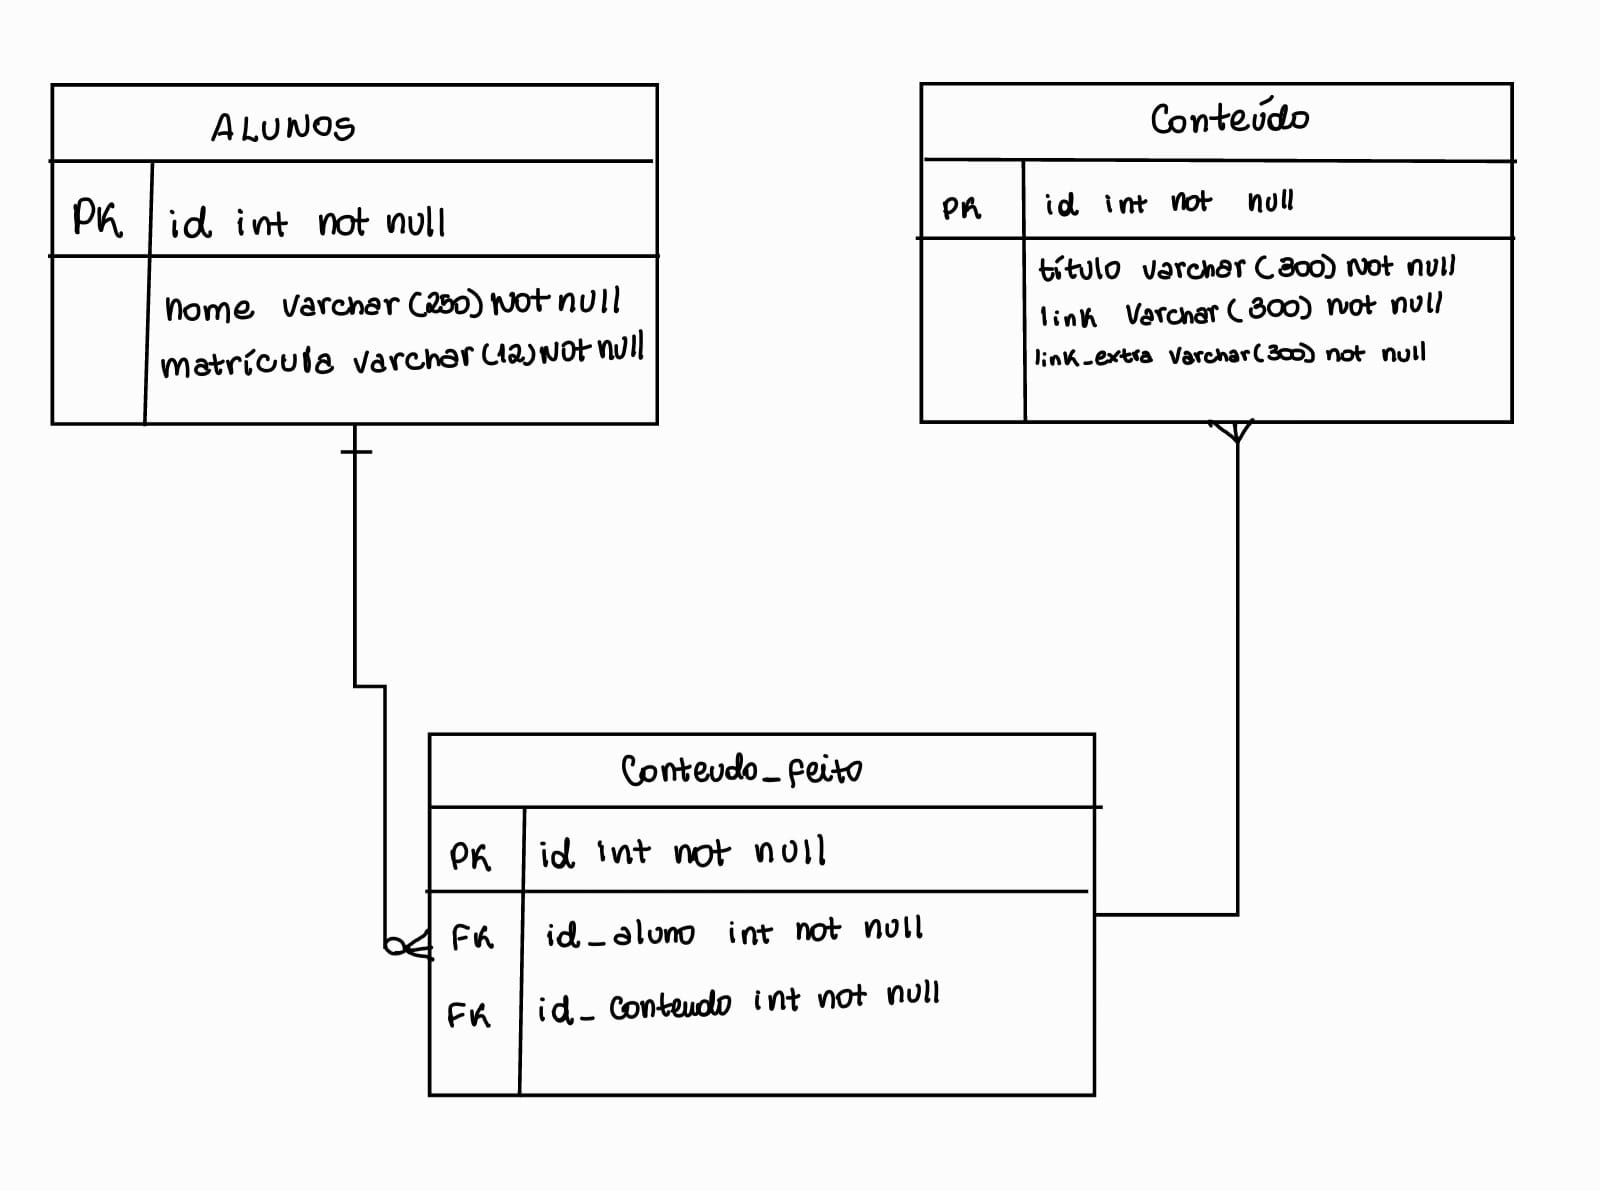 ALUNOS
PK id int not null
nome varchar (250) Not null
matrícula varchar (12) Not null
Conteúdo
PK id int not null
título varchar (300) Not null
link Varchar (300) not null
link_extra Varchar (300) not null
Conteudo_feito
PK id int not null
FK id_aluno int not null
FK id_conteudo int not null